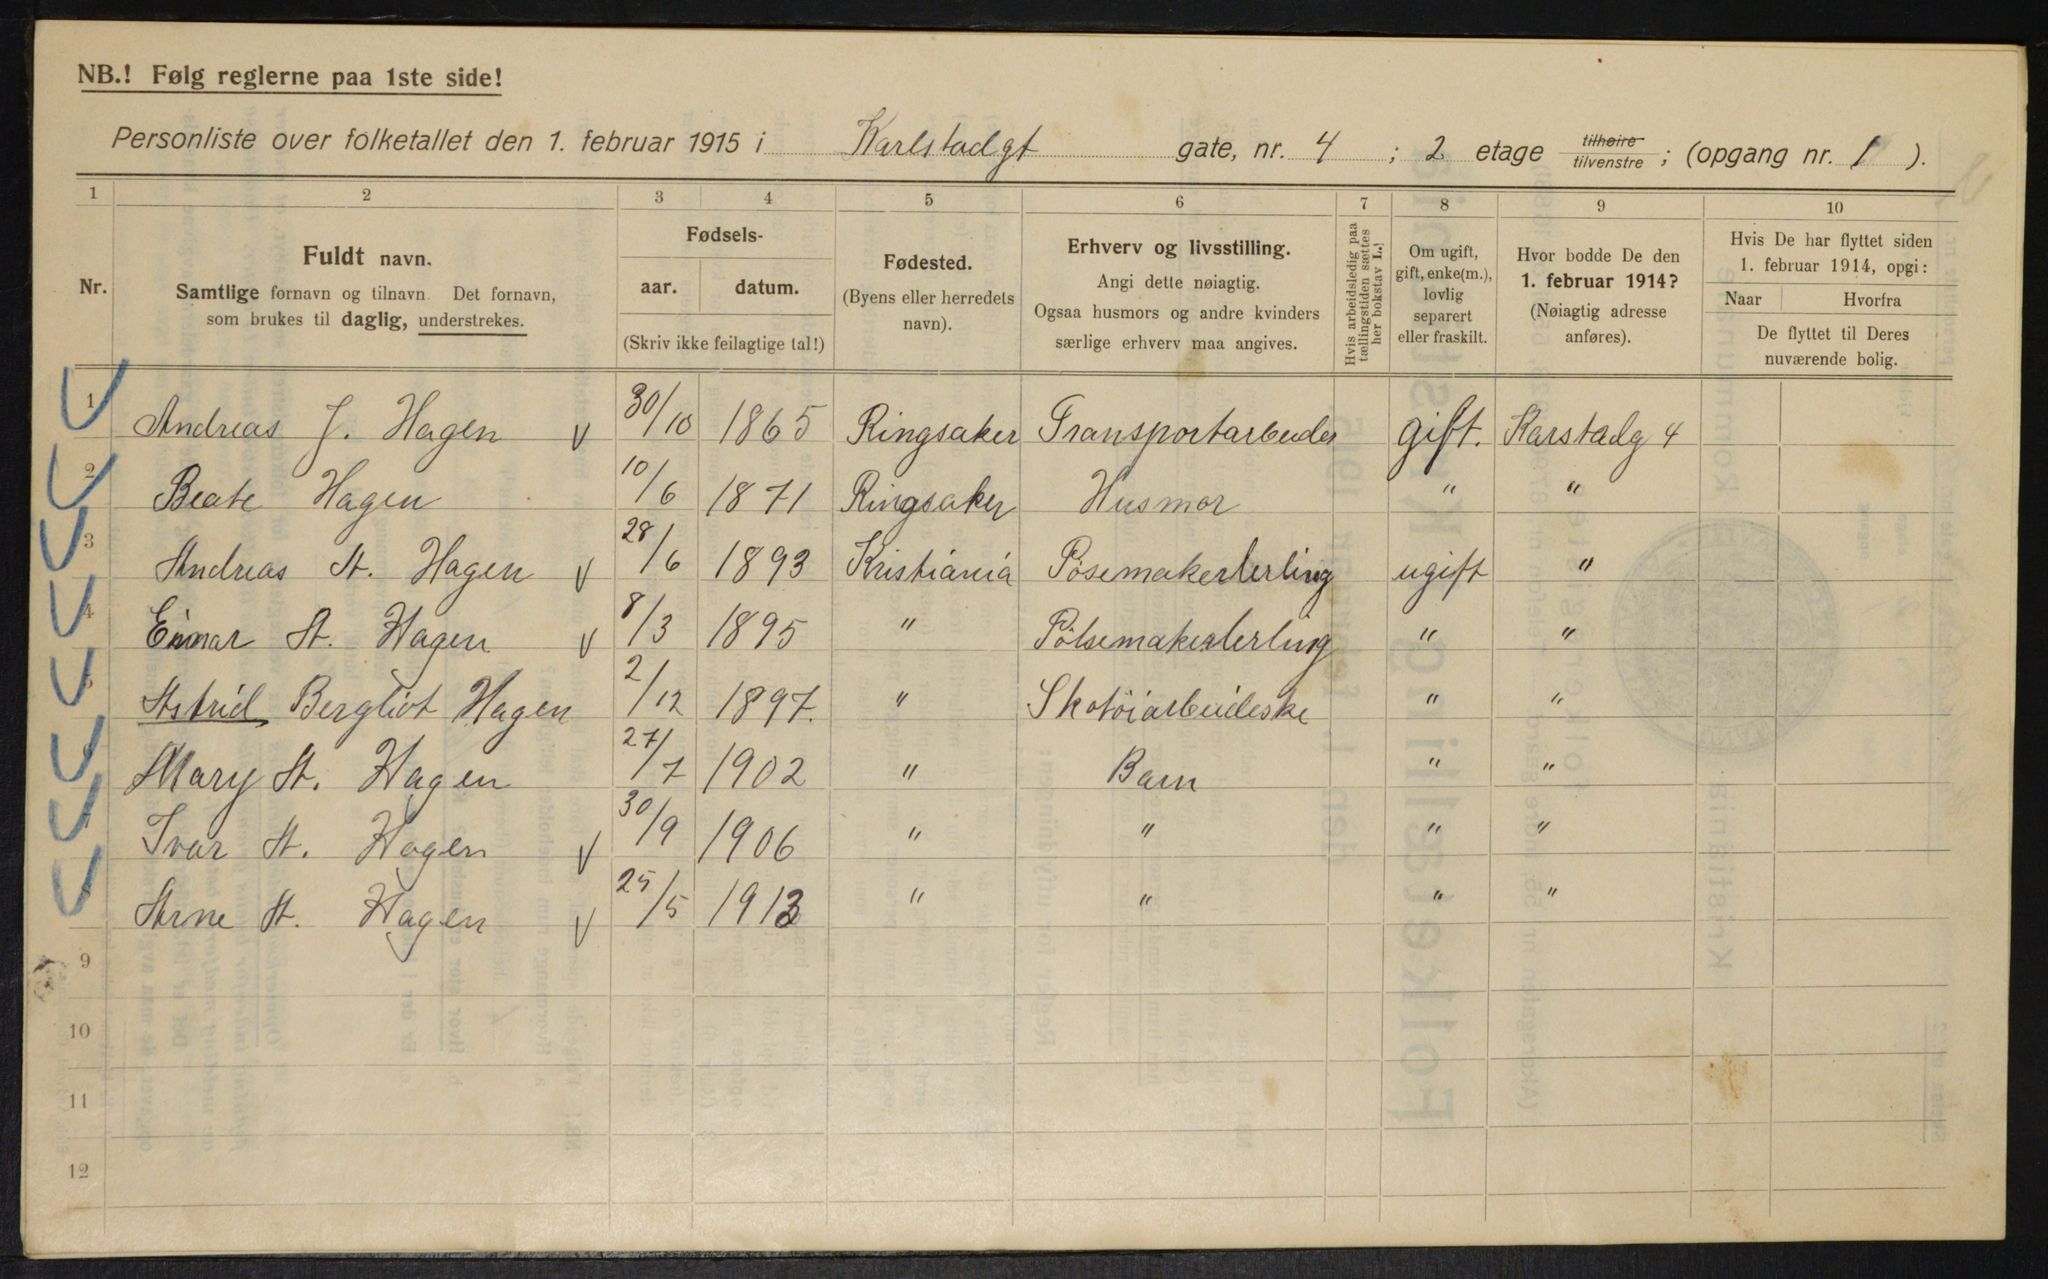 NB.! Følg reglerne paa 1ste side!
Personliste over folketallet den 1. februar 1915 i Karlstadgt gate, nr. 4 ; 2 etage tilhøire tilvenstre ; (opgang nr. 1 ).
1 2 3 4 5 6 7 8 9 10
Nr.
Fuldt navn.
Samtlige fornavn og tilnavn. Det fornavn,
som brukes til daglig, understrekes.
Fødsels-
aar. datum.
(Skriv ikke feilagtige tal!)
Fødested.
(Byens eller herredets
navn).
Erhverv og livsstilling.
Angi dette nøiagtig.
Ogsaa husmors og andre kvinders
særlige erhverv maa angives.
Hvis arbeidsledig paa
tællingstiden sættes
her bokstav L.!
Om ugift,
gift, enke(m.),
lovlig
separert
eller fraskilt.
Hvor bodde De den
1. februar 1914?
(Nøiagtig adresse
anføres).
Hvis De har flyttet siden
1. februar 1914, opgi:
Naar Hvorfra
De flyttet til Deres
nuværende bolig.
1 Andreas J. Hagen 30/10 1865 Ringsaker Transportarbeider gift. Karstadg 4
2 Beate Hagen 10/6 1871 Ringsaker Husmor " "
3 Andreas A. Hagen 28/6 1893 Kristiania Pøsemakerlerling ugift "
4 Einar A. Hagen 8/3 1895 " Pølsemakerlerling " "
5 Astrid Bergliot Hagen 2/12 1897. " Skotøiarbeideske " "
6 Mary A. Hagen 27/7 1902 " Barn " "
7 Ivar A. Hagen 30/9 1906 " " " "
8 Arne A. Hagen 25/5 1913 " " " "
9
10
11
12